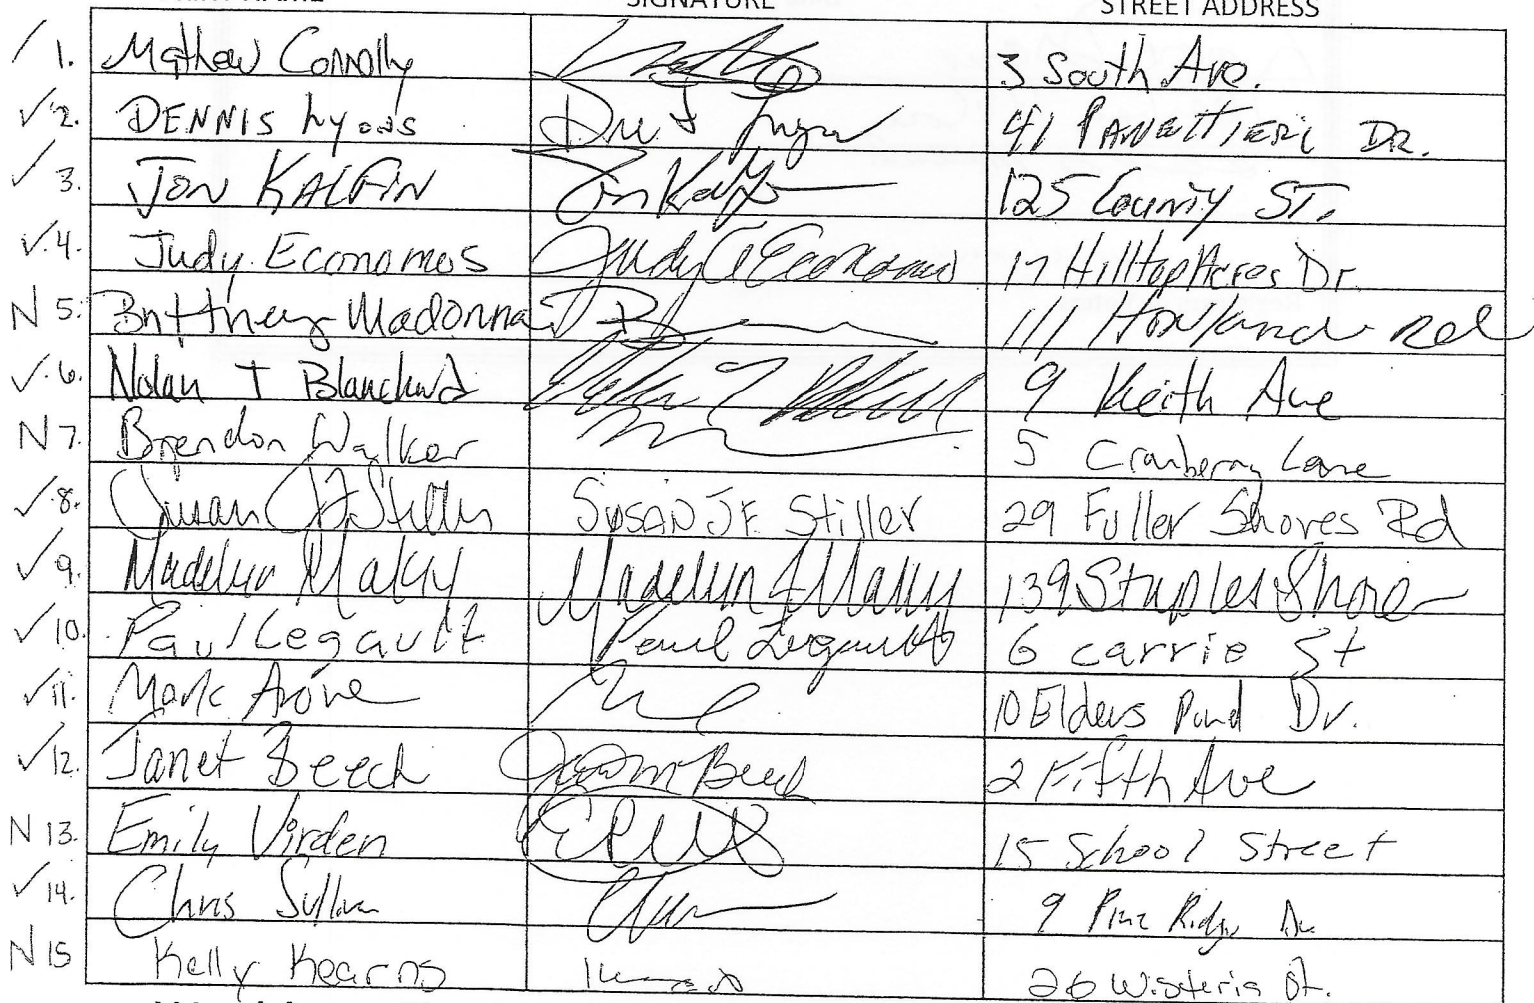 SIGNATURE STREET ADDRESS
/ 1. Mathew Connolly 3 South Ave.
✓ 2. DENNIS Lyons 41 PANETTIERI DR.
✓ 3. JON KALFIN Jon Kalf 125 County ST.
✓ 4. Judy Economos Judy Economos 17 Hilltop Acres Dr.
N 5. Brittney Madonna 111 Howland Rd
✓ 6. Nolan T Blanchard 9 Keith Ave
N 7. Brendon Walker 5 Cranberry Lane
✓ 8. Susan JF Stiller SUSAN JF Stiller 29 Fuller Shores Rd
✓ 9. Madelyn Maky Madelyn Maky 139 Staples Shore
✓ 10. Paul Legault Paul Legault 6 carrie St
✓ 11. Mark Arone 10 Elders Pond Dr.
✓ 12. Janet Beech Beech 2 Fifth Ave
N 13. Emily Virden 15 School Street
✓ 14. Chris Sullivan 9 Pine Ridge
N 15 Kelly Kearns 26 Wisteria St.